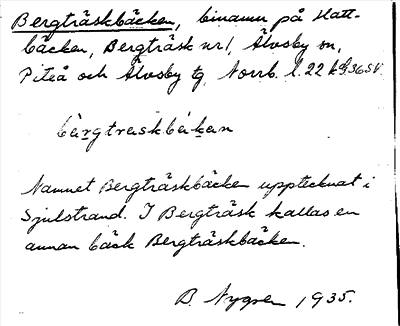 Bergträskbäcken, binamn på Hatt-
bäcken, Bergträsk nr 1, Älvsby sn,
Piteå och Älvsby tg, Norrb. l. 22
bärgtraskbäkan
Namnet Bergträskbäcken upptecknat i
Sjulstrand. I Bergträsk kallas en
annan bäck Bergträskbäcken.
B. Nygren 1935.